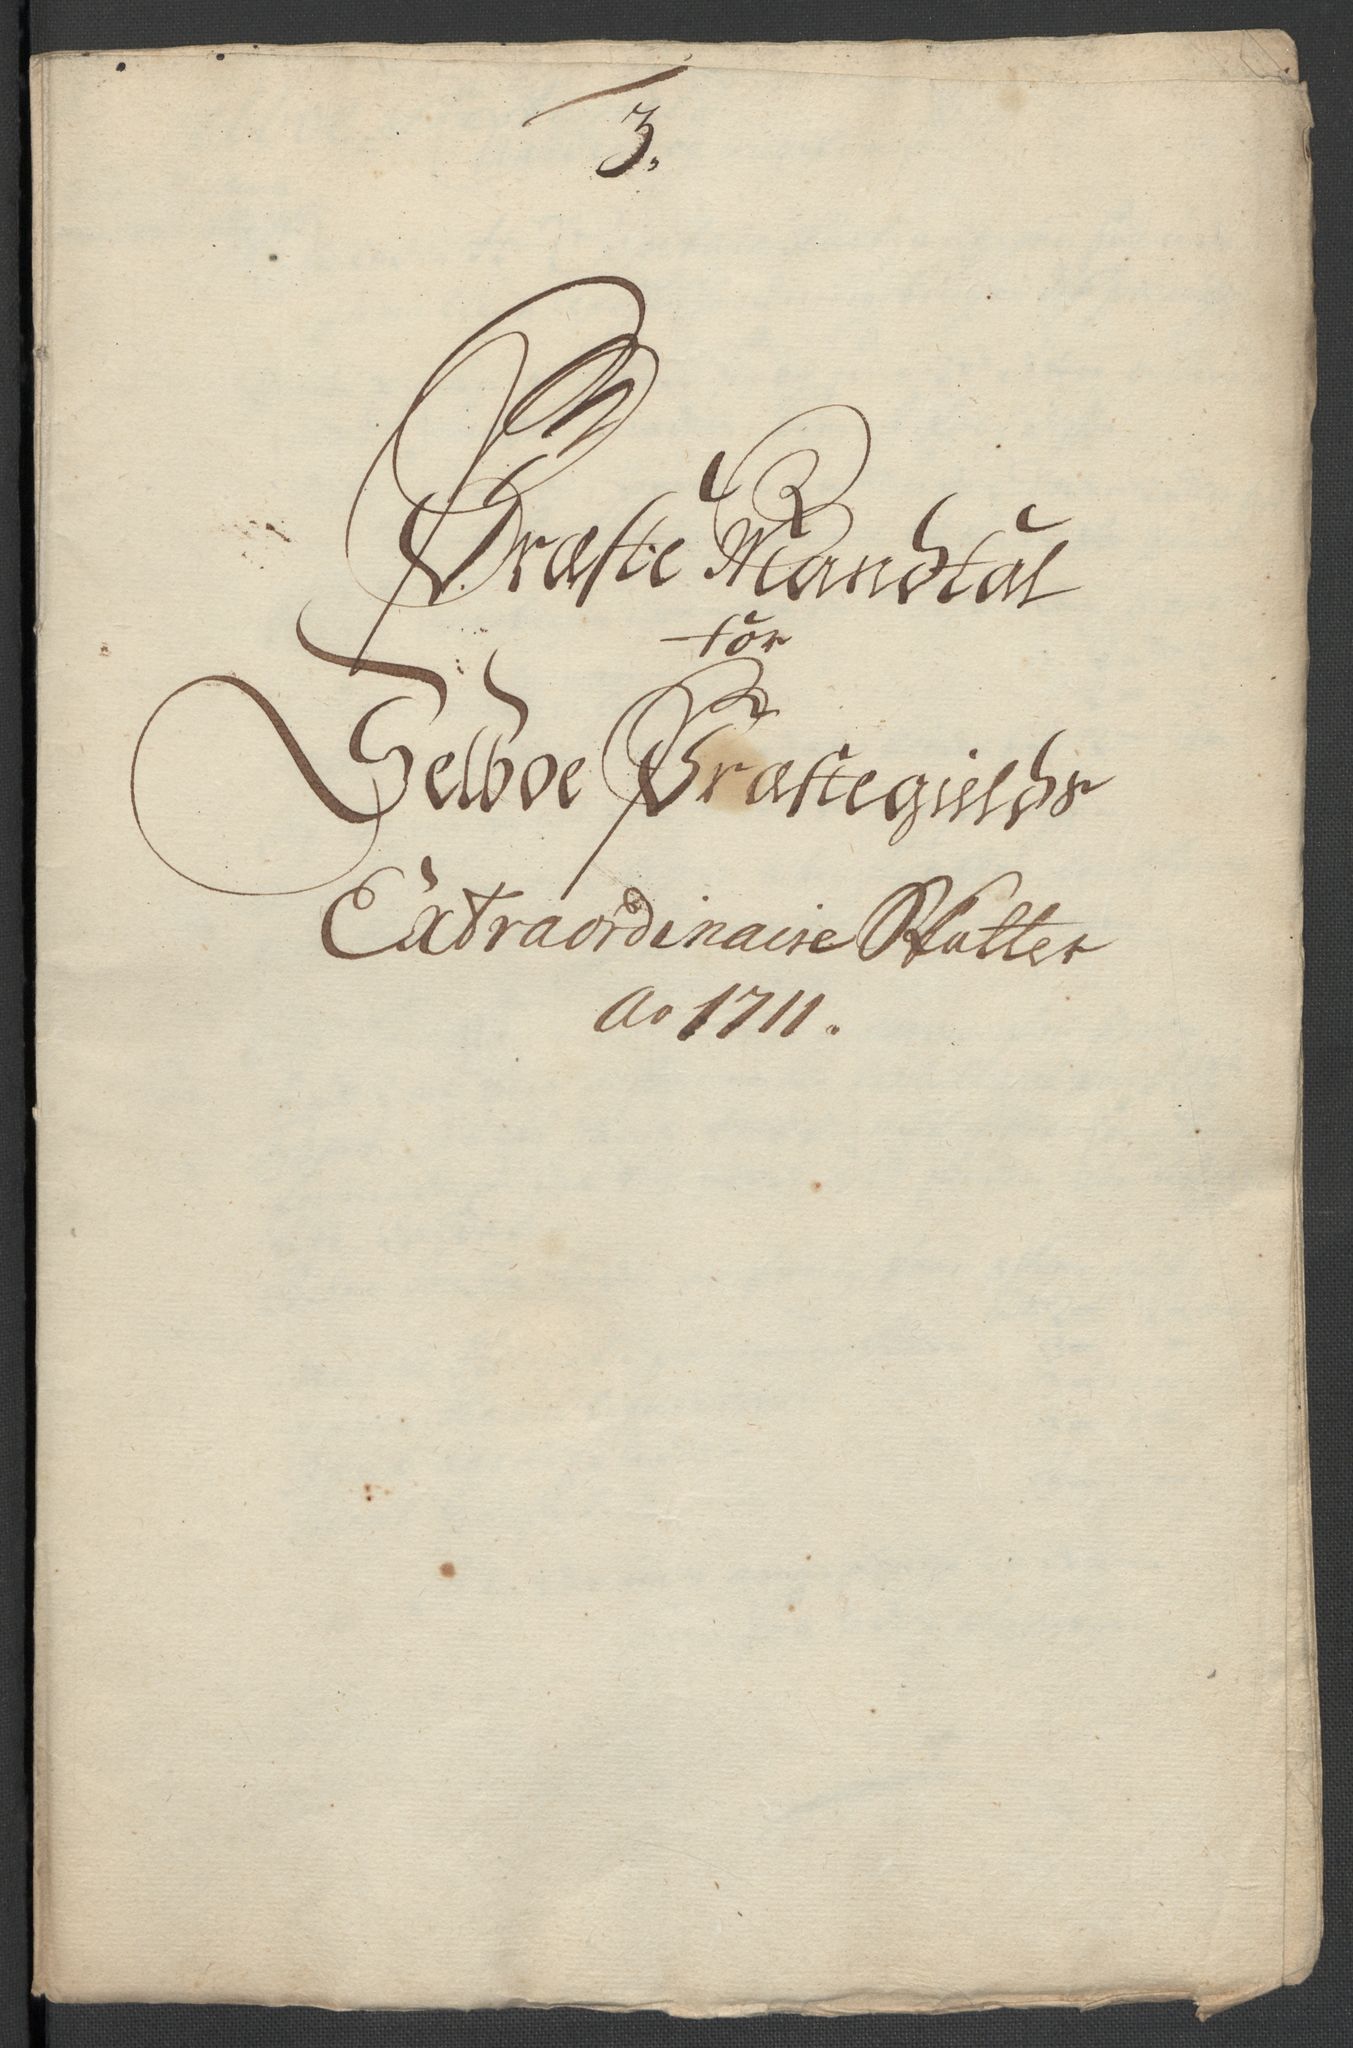 3.
Præste Mandtal
for
Selboe Præstegieldß
Extraordinaire Skatter
Ao 1711.